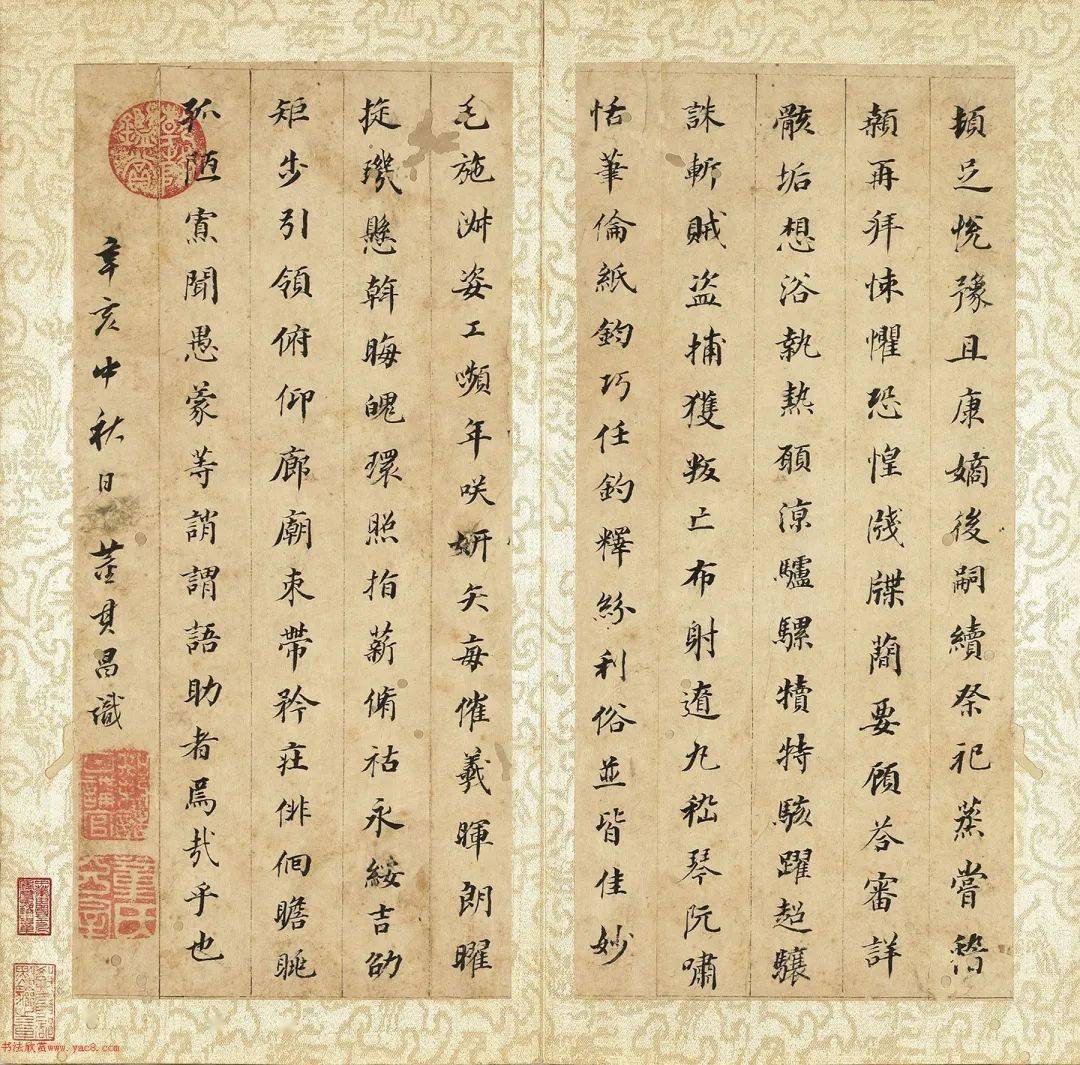 頓足悅豫且康嫡後嗣續祭祀蒸嘗稽
顙再拜悚懼恐惶牋牒簡要顧荅審詳
骸垢想浴執熱願涼驢騾犢特駭躍超驤
誅斬賊盜捕獲叛亡布射遼丸嵇琴阮嘯
恬筆倫紙鈞巧任釣釋紛利俗並皆佳妙
毛施淑姿工嚬年咲妍矢每催羲暉朗曜
旋璣懸斡晦魄環照指薪脩祜永綏吉劭
矩步引領俯仰廊廟束帶矜莊俳佪瞻眺
孤陋寡聞愚蒙等誚謂語助者焉哉乎也
辛亥中秋日董其昌識
书法欣赏www.yac8.com